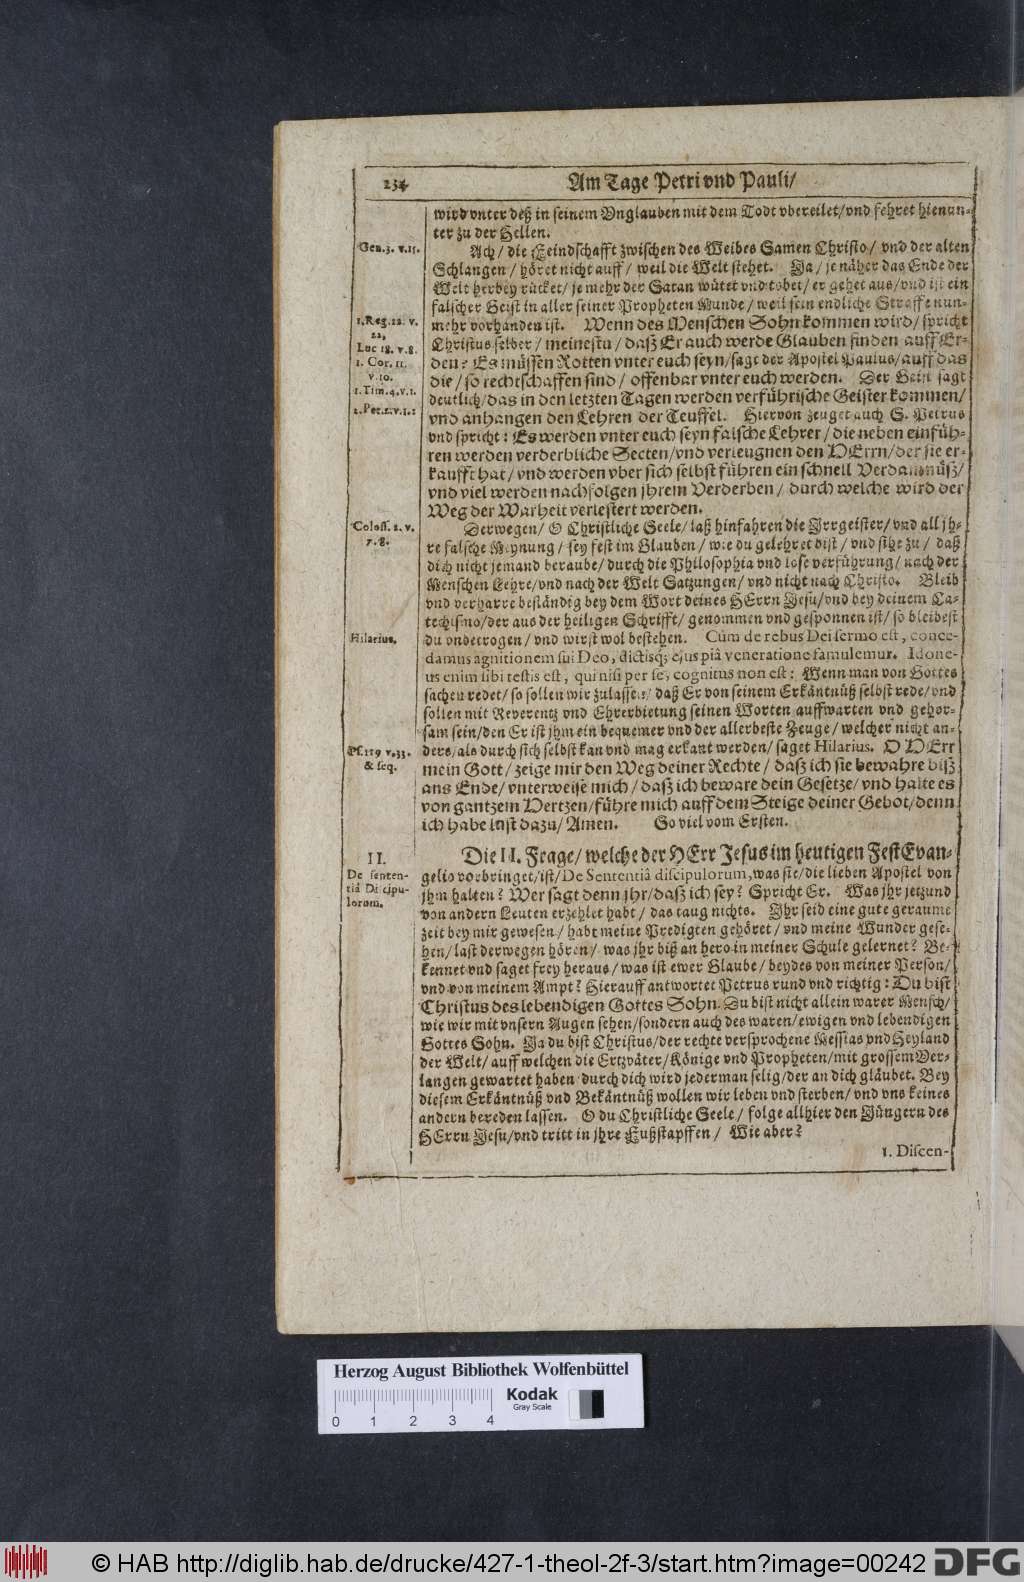 234 Am Tage Petri vnd Pauli/
wird vnter deß in seinem Vnglauben mit dem Todt vbereilet/vnd fehret hienun-
ter zu der Hellen.
Gen. 3. v. 15. Ach/ die Feindschafft zwischen des Weibes Samen Christo/ vnd der alten
Schlangen/ höret nicht auff/ weil die Welt stehet. Ja/ je näher das Ende der
Welt herbey rücket/ je mehr der Satan wütet vnd tobet/ er gehet aus/ vnd ist ein
falscher Geist in aller seiner Propheten Munde/ weil sein endliche Straffe nun-
1. Reg. 22. v. mehr vorhanden ist. Wenn des Menschen Sohn kommen wird/ spricht
22.
Luc 18. v. 8. Christus selber/ meinestu/ daß Er auch werde Glauben finden auff Er-
1. Cor. 11. den? Es müssen Rotten vnter euch seyn/ sagt der Apostel Paulus/ auff das
v. 19. die/ so rechtschaffen sind/ offenbar vnter euch werden. Der Geist sagt
1. Tim. 4. v. 1. deutlich/ das in den letzten Tagen werden verführische Geister kommen/
2. Pet. 2. v. 1. 2 vnd anhangen den Lehren der Teuffel. Hiervon zeuget auch S. Petrus
vnd spricht: Es werden vnter euch seyn falsche Lehrer/ die neben einfüh-
ren werden verderbliche Secten/ vnd verleugnen den HErrn/ der sie er-
kaufft hat/ vnd werden vber sich selbst führen ein schnell Verdamnüß/
vnd viel werden nachfolgen jhrem Verderben/ durch welche wird der
Weg der Warheit verlestert werden.
Coloss. 2. v. Derwegen/ O Christliche Seele/ laß hinfahren die Irrgeister/ vnd all jh-
7. 8. re falsche Meynung/ sey fest im Glauben/ wie du gelehret bist/ vnd sihe zu/ daß
dich nicht jemand beraube/ durch die Philosophia vnd lose verführung/ nach der
Menschen Lehre/ vnd nach der Welt Satzungen/ vnd nicht nach Christo. Bleib
vnd verharre beständig bey dem Wort deines HErrn Jesu/ vnd bey deinem Ca-
techismo/ der aus der heiligen Schrifft/ genommen vnd gesponnen ist/ so bleibest
Hilarius. du vnbetrogen/ vnd wirst wol bestehen. Cùm de rebus Dei sermo est, conce-
damus agnitionem sui Deo, dictisq; ejus piâ veneratione famulemur. Idone-
us enim sibi testis est, qui nisi per se, cognitus non est: Wenn man von Gottes
sachen redet/ so sollen wir zulassen/ daß Er von seinem Erkäntnüß selbst rede/ vnd
sollen mit Reverentz vnd Ehrerbietung seinen Worten auffwarten vnd gehor-
sam sein/ den Er ist jhm ein bequemer vnd der allerbeste Zeuge/ welcher nicht an-
Ps. 119 v. 33. ders/ als durch sich selbst kan vnd mag erkant werden/ saget Hilarius. O HErr
& seq. mein Gott/ zeige mir den Weg deiner Rechte/ daß ich sie bewahre biß
ans Ende/ vnterweise mich/ daß ich beware dein Gesetze/ vnd halte es
von gantzem Hertzen/ führe mich auff dem Steige deiner Gebot/ denn
ich habe lust dazu/ Amen. So viel vom Ersten.
II. Die II. Frage/ welche der HErr Jesus im heutigen Fest Evan-
De senten- gelio vorbringet/ ist/ De Sententiâ discipulorum, was sie/ die lieben Apostel von
tiâ Discipu- jhm halten? Wer sagt denn jhr/ daß ich sey? Spricht Er. Was jhr jetzund
lorum. von andern Leuten erzehlet habt/ das taug nichts. Ihr seid eine gute geraume
zeit bey mir gewesen/ habt meine Predigten gehöret/ vnd meine Wunder gese-
hen/ last derwegen hören/ was jhr biß an hero in meiner Schule gelernet? Be-
kennet vnd saget frey heraus/ was ist ewer Glaube/ beydes von meiner Person/
vnd von meinem Ampt? Hierauff antwortet Petrus rund vnd richtig: Du bist
Christus des lebendigen Gottes Sohn. Du bist nicht allein warer Mensch/
wie wir mit vnsern Augen sehen/ sondern auch des waren/ ewigen vnd lebendigen
Gottes Sohn. Ja du bist Christus/ der rechte versprochene Messias vnd Heyland
der Welt/ auff welchen die Ertzväter/ Könige vnd Propheten/ mit grossem Ver-
langen gewartet haben durch dich wird jederman selig/ der an dich gläubet. Bey
diesem Erkäntnüß vnd Bekäntnüß wollen wir leben vnd sterben/ vnd vns keines
andern bereden lassen. O du Christliche Seele/ folge allhier den Jüngern des
HErrn Jesu/ vnd tritt in jhre Fußstapffen/ Wie aber?
1. Discen-
Herzog August Bibliothek Wolfenbüttel
0 1 2 3 4
Kodak
Gray Scale
© HAB http://diglib.hab.de/drucke/427-1-theol-2f-3/start.htm?image=00242 DFG